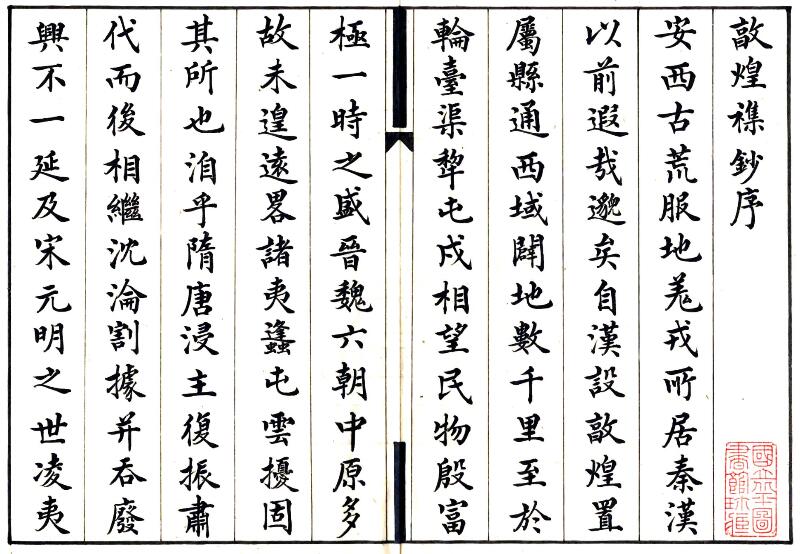 敦煌襍鈔序
安西古荒服地羗戎所居秦漢
以前遐㢤邈矣自漢設敦煌置
屬縣通西域闢地數千里至於
輪臺渠犂屯戍相望民物殷富
極一時之盛晉魏六朝中原多
故未遑遠畧諸夷蠭屯雲擾固
其所也洎乎隋唐浸主復振肅
代而後相繼沈淪割據并吞廢
興不一延及宋元明之世凌夷
國立北平圖書館珍藏